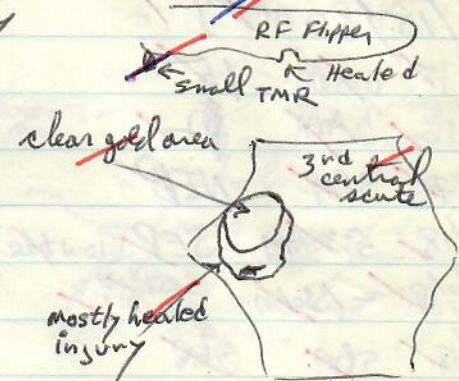 RF Flipper
small TMR
Healed
clear gold area
3rd central scute
mostly healed injury